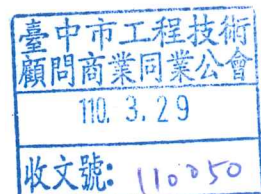 臺中市工程技術
顧問商業同業公會
110. 3. 29
收文號: 110050